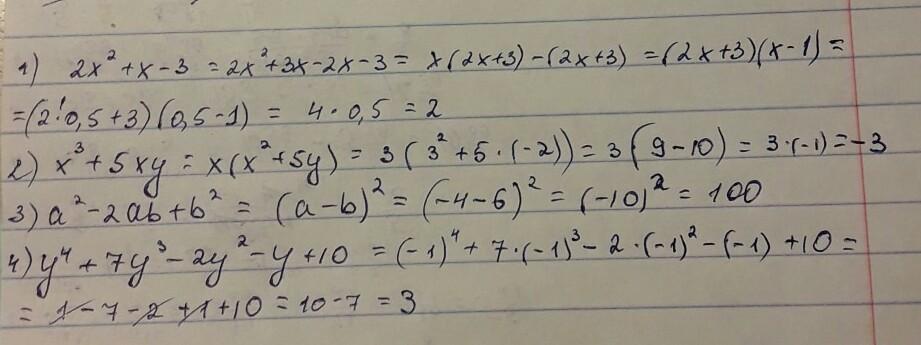 1) 2x² + x - 3 = 2x² + 3x - 2x - 3 = x(2x+3) - (2x+3) = (2x+3)(x-1) =
= (2·0,5+3)(0,5-1) = 4 · 0,5 = 2
2) x³ + 5xy = x(x² + 5y) = 3(3² + 5 · (-2)) = 3(9-10) = 3·(-1) = -3
3) a² - 2ab + b² = (a-b)² = (-4-6)² = (-10)² = 100
4) y⁴ + 7y³ - 2y² - y + 10 = (-1)⁴ + 7·(-1)³ - 2·(-1)² - (-1) + 10 =
= 1 - 7 - 2 + 1 + 10 = 10 - 7 = 3